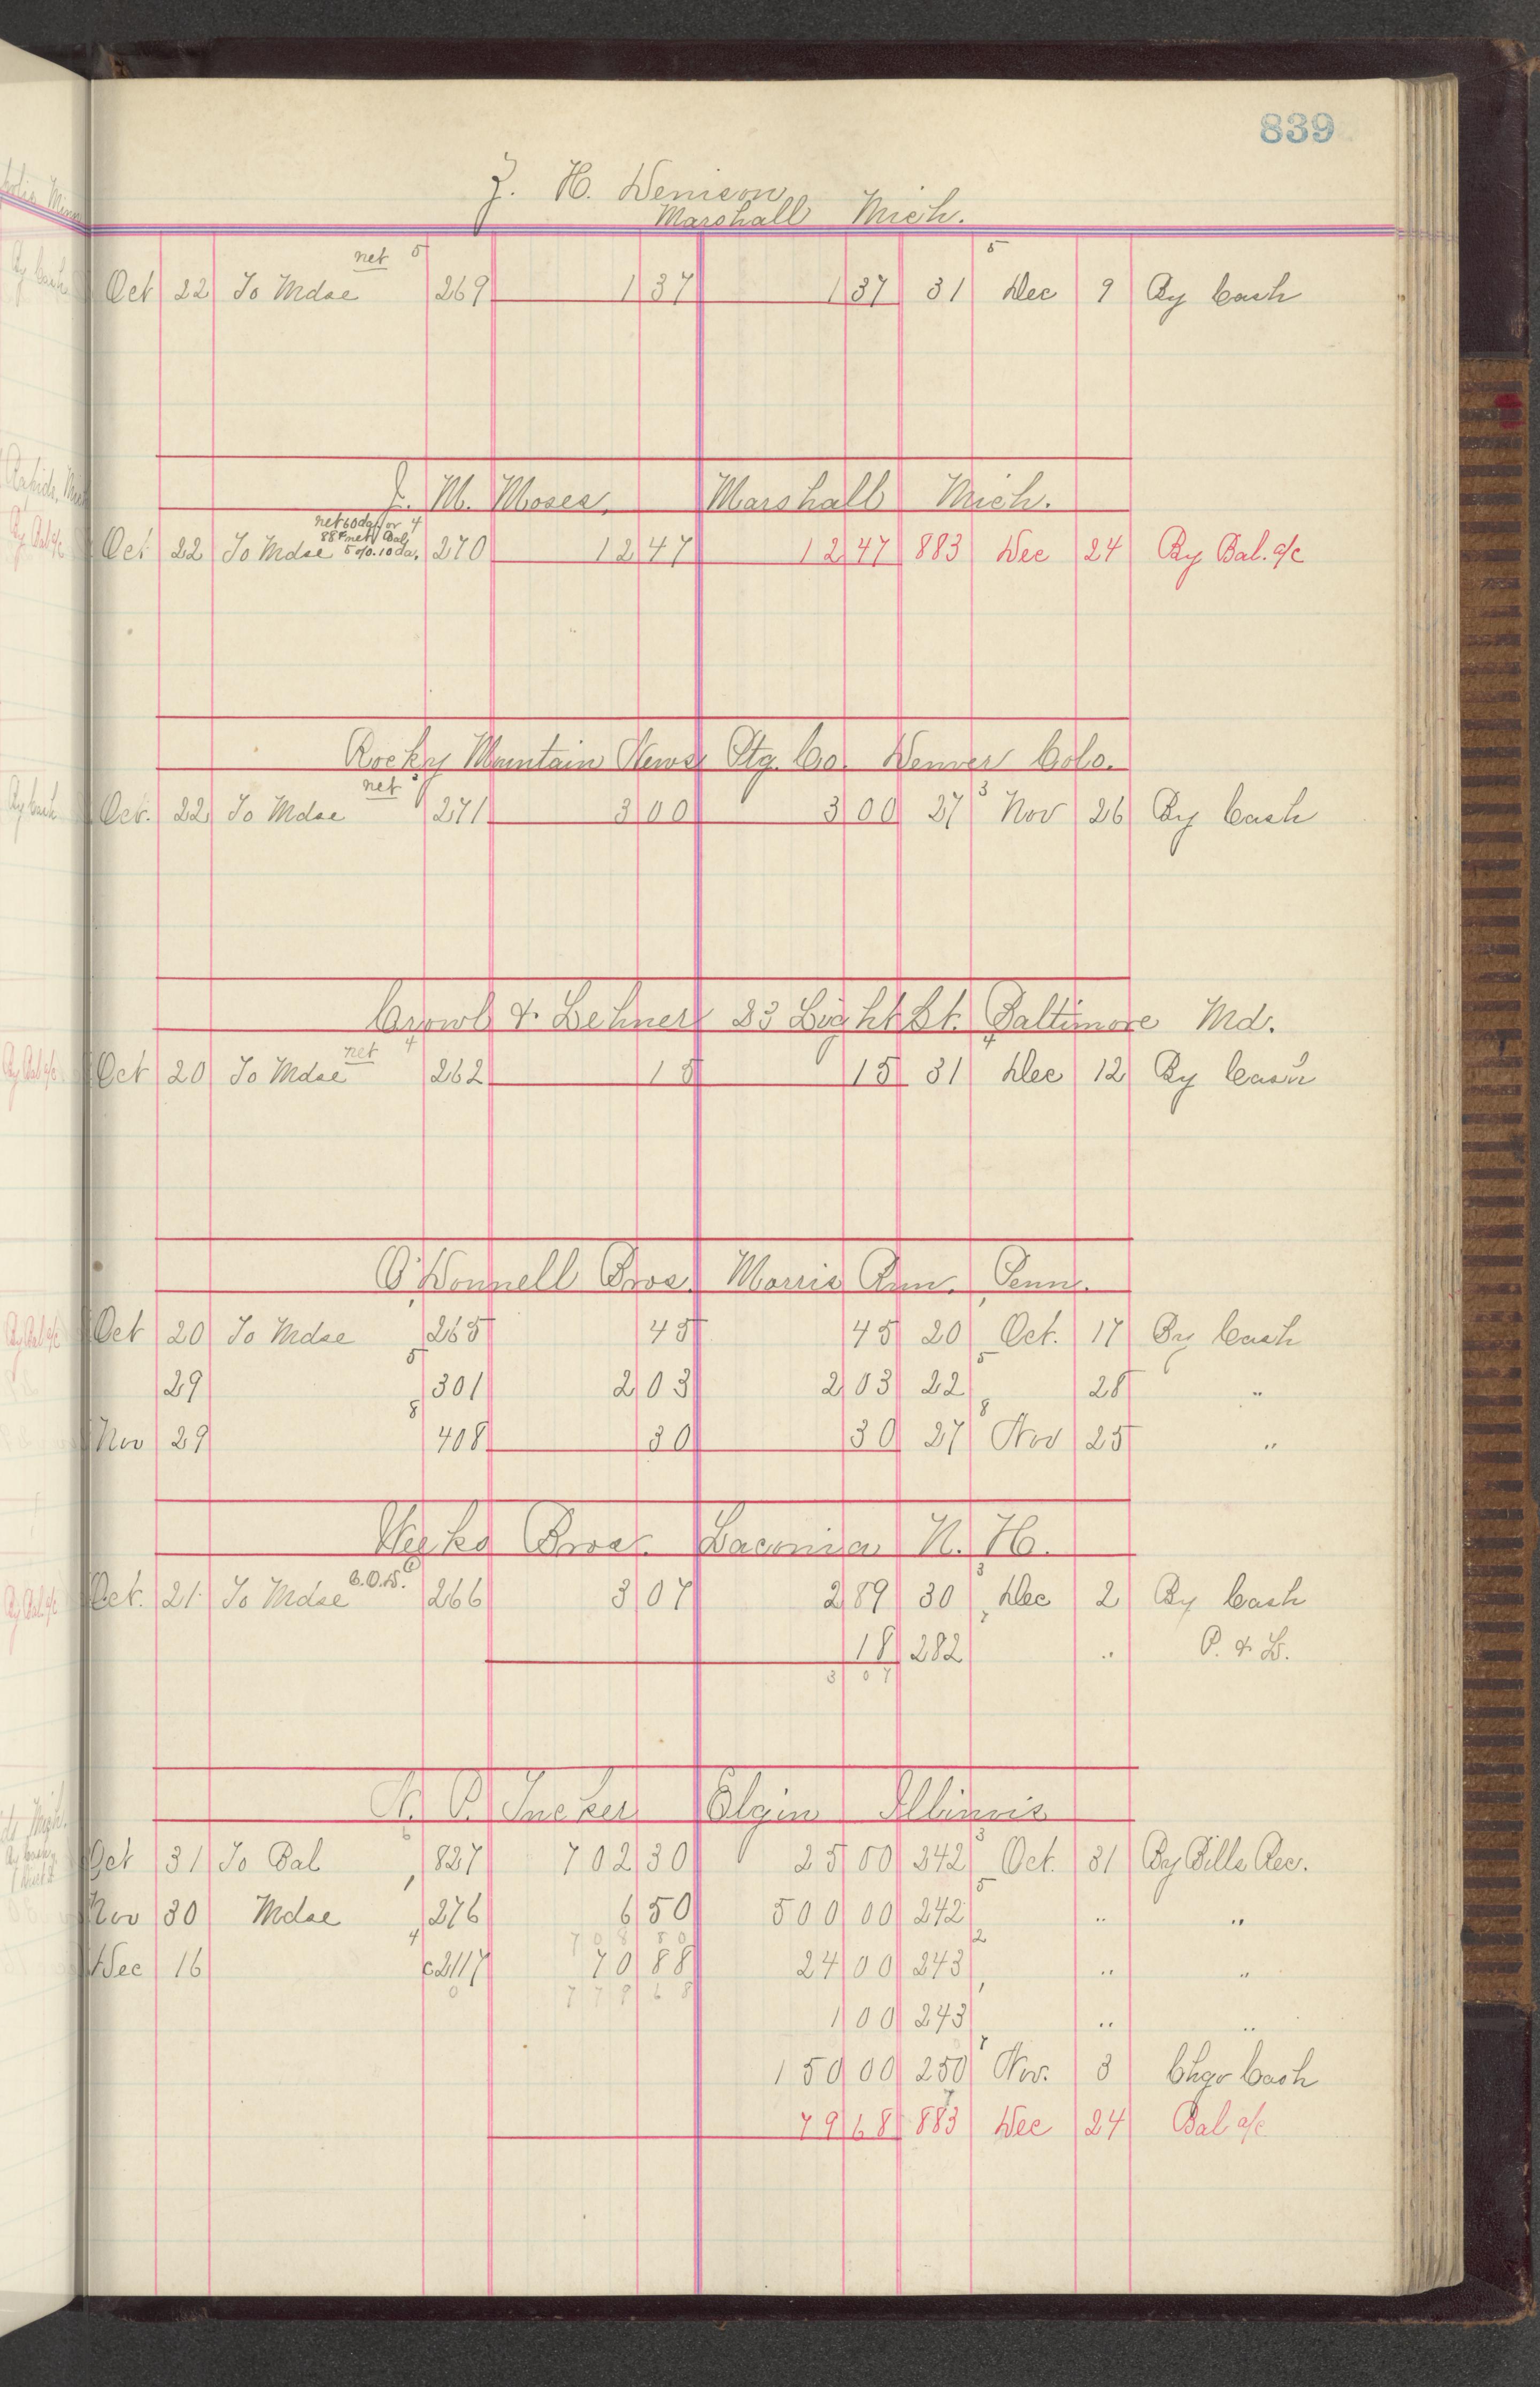 839
J. H. Denison
Marshall Mich.
net 5 5
Oct 22 To Mdse 269 1 37 1 37 31 Dec 9 By Cash
J. M. Moses, Marshall Mich.
net 60 da or 4
88¢ net Bal.
Oct 22 To Mdse 5 o/o 10 da. 270 12 47 12 47 883 Dec 24 By Bal. a/c
Rocky Mountain News Ptg. Co. Denver Colo.
net 3
Oct. 22 To Mdse 271 3 00 3 00 27 Nov 26 By Cash
& Lehner 23 Light St. Baltimore Md.
net 4 4
Oct 20 To Mdse 262 15 15 31 Dec 12 By Cash
O'Donnell Bros. Morris Run. Penn.
Oct 20 To Mdse 265 45 45 20 Oct. 17 By Cash
5 5
29 301 2 03 2 03 22 28 "
8 8
Nov 29 408 30 30 27 Nov 25 "
Bros. Laconia N. H.
C.O.D. 3
Oct. 21 To Mdse 266 3 07 2 89 30 Dec 2 By Cash
18 282 " P. & L.
3 07
Tucker Elgin Illinois
Oct 31 To Bal 827 702 30 25 00 242 Oct. 31 By Bills Rec.
Nov 30 Mdse 276 6 50 500 00 242 " "
708 80
Dec 16 C2117 70 88 24 00 243 " "
779 68
1 00 243 " "
150 00 250 Nov. 3 Chgo Cash
79 68 883 Dec 24 Bal a/c